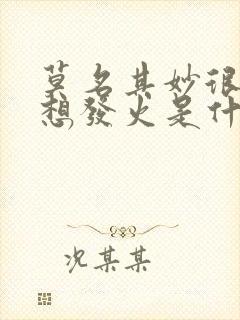 莫名其妙很
想發火是什
况某某